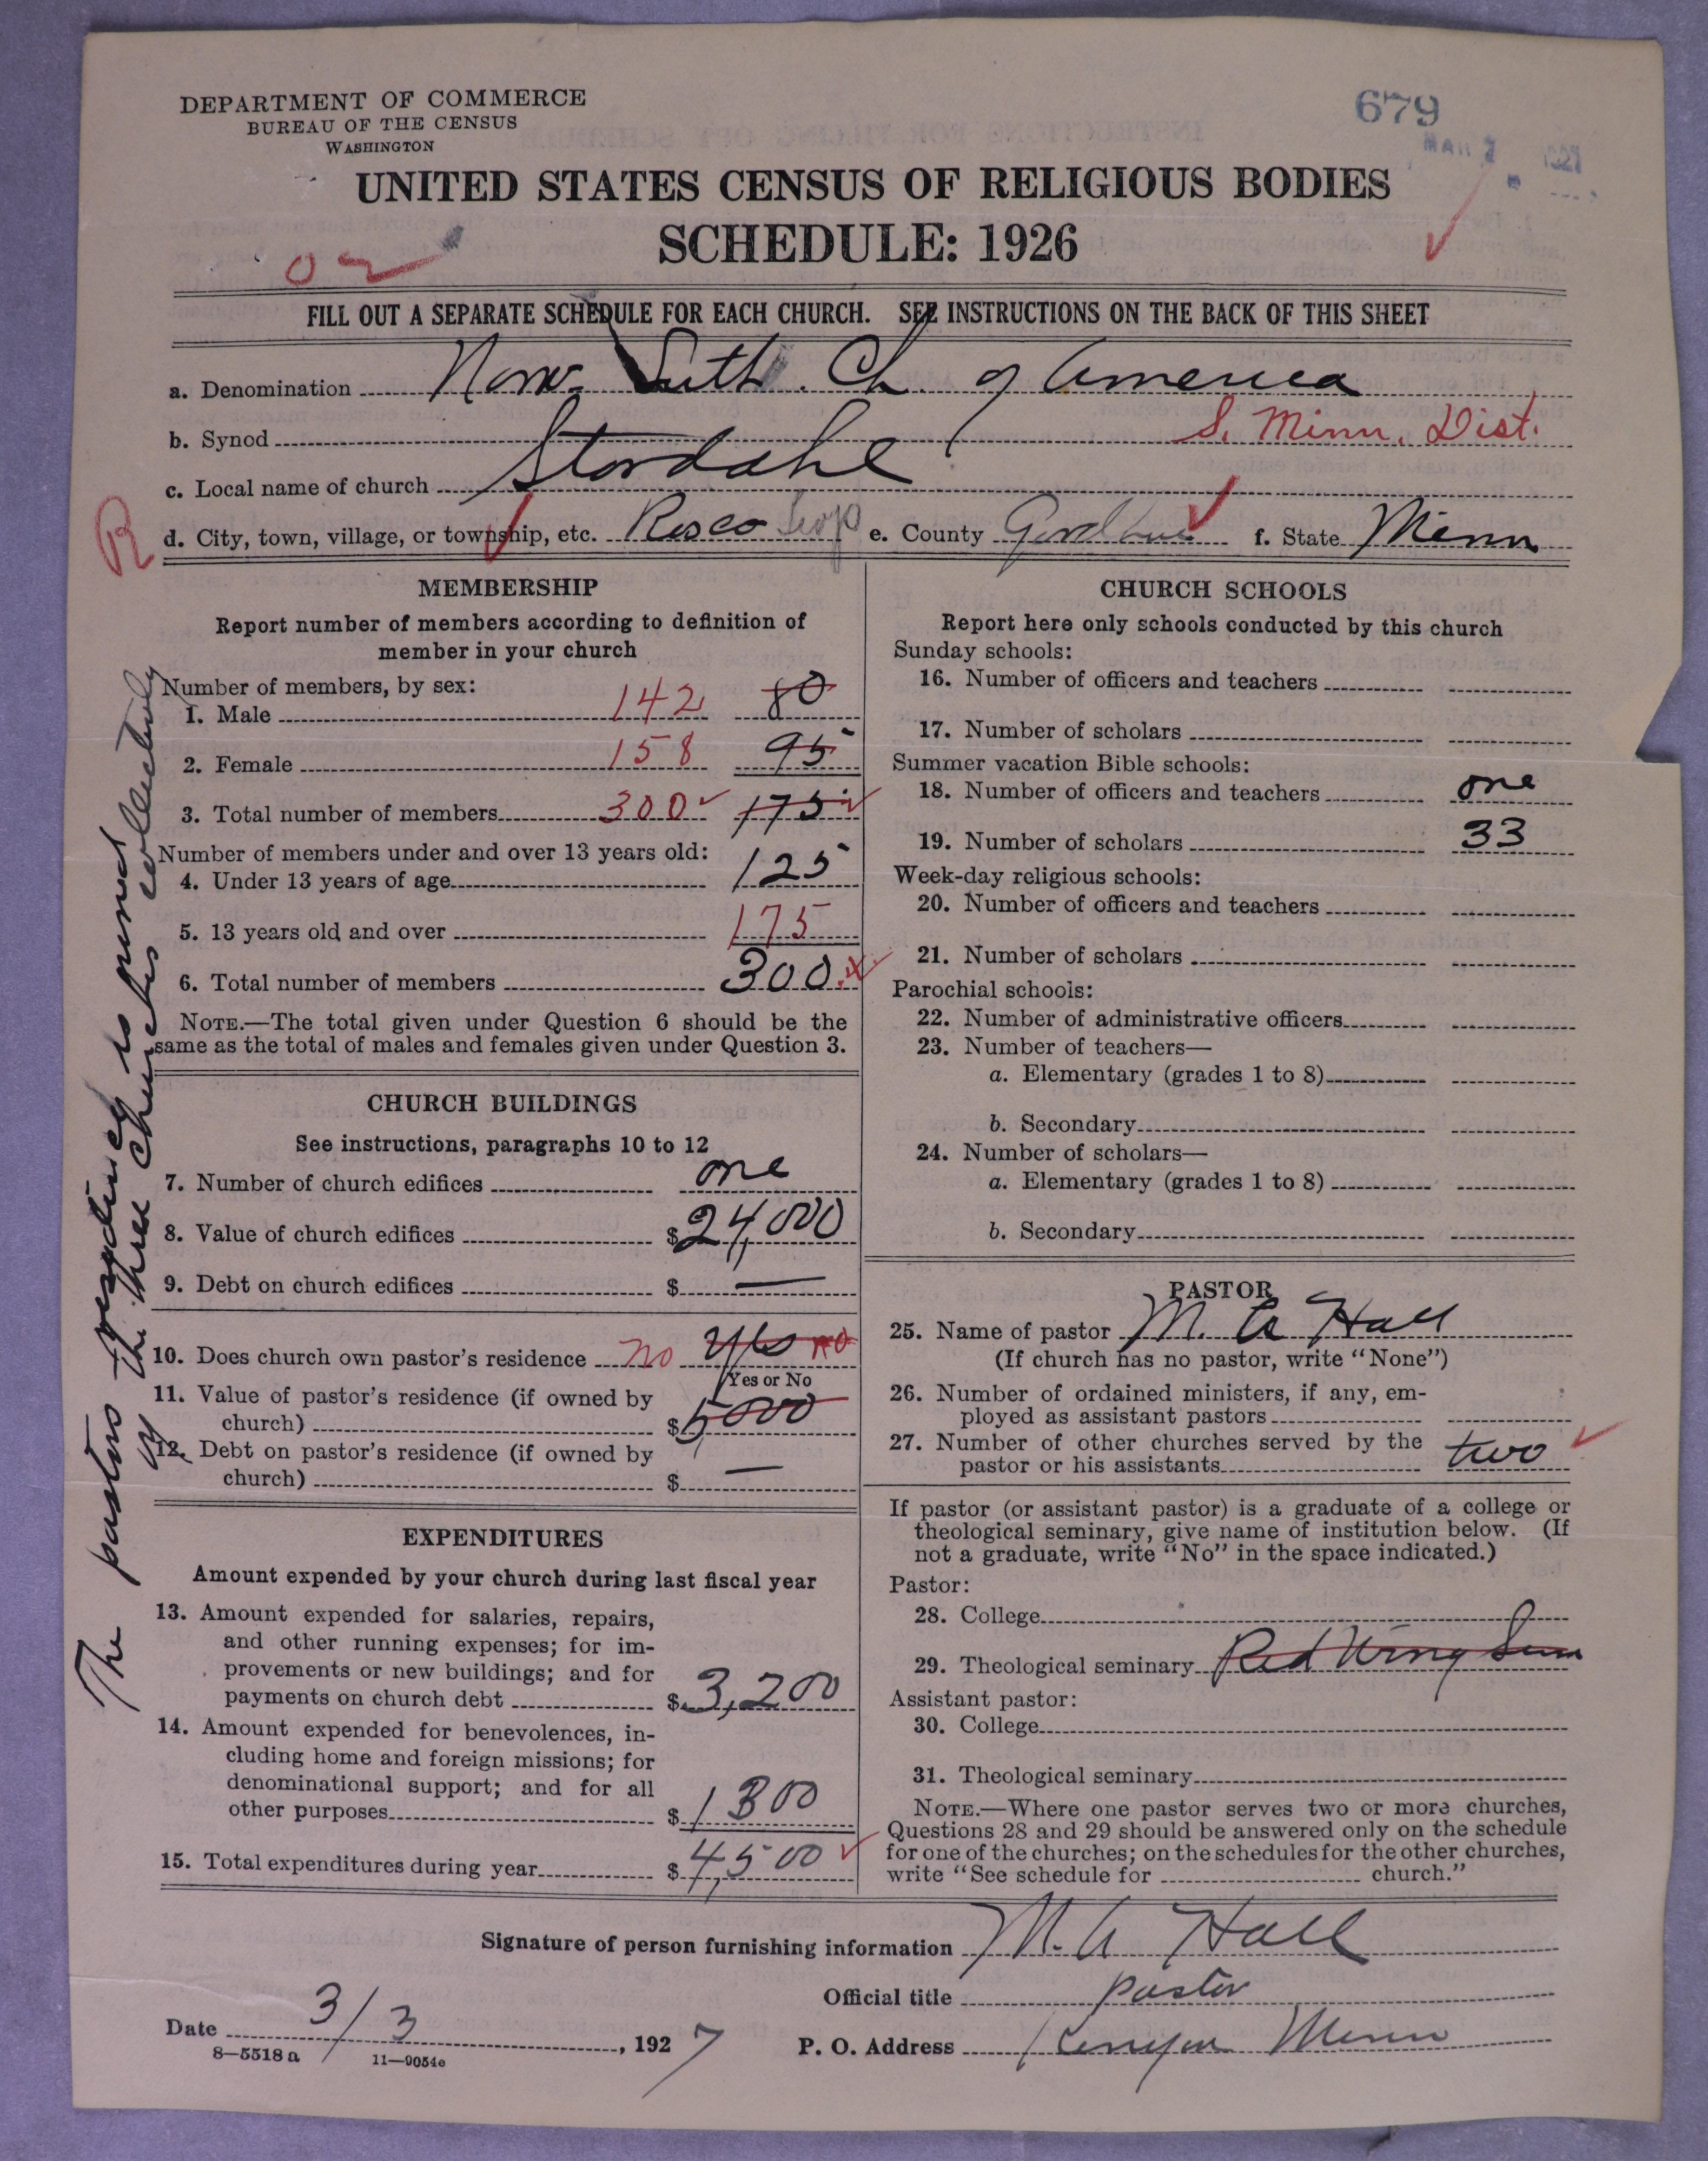 DEPARTMENT OF COMMERCE
BUREAU OF THE CENSUS
WASHINGTON
679
MAR 1927
UNITED STATES CENSUS OF RELIGIOUS BODIES
SCHEDULE: 1926
FILL OUT A SEPARATE SCHEDULE FOR EACH CHURCH. SEE INSTRUCTIONS ON THE BACK OF THIS SHEET
a. Denomination Norw. Luth. Ch. of America
b. Synod S. Minn. Dist.
c. Local name of church Stordahl
R
d. City, town, village, or township, etc. Rosco twp e. County Goodhue f. State Minn
MEMBERSHIP
Report number of members according to definition of
member in your church
Number of members, by sex:
1. Male 142 80
2. Female 158 95
3. Total number of members 300 175
Number of members under and over 13 years old:
4. Under 13 years of age 125
5. 13 years old and over 175
6. Total number of members 300
NOTE.—The total given under Question 6 should be the
same as the total of males and females given under Question 3.
CHURCH BUILDINGS
See instructions, paragraphs 10 to 12
7. Number of church edifices one
8. Value of church edifices $24,000
9. Debt on church edifices $ —
10. Does church own pastor's residence no yes no
Yes or No
11. Value of pastor's residence (if owned by
church) $5,000
12. Debt on pastor's residence (if owned by
church) $ —
EXPENDITURES
Amount expended by your church during last fiscal year
13. Amount expended for salaries, repairs,
and other running expenses; for im-
provements or new buildings; and for
payments on church debt $3,200
14. Amount expended for benevolences, in-
cluding home and foreign missions; for
denominational support; and for all
other purposes $1300
15. Total expenditures during year $4,500
The pastors residence is owned
by the three churches collectively
CHURCH SCHOOLS
Report here only schools conducted by this church
Sunday schools:
16. Number of officers and teachers
17. Number of scholars
Summer vacation Bible schools:
18. Number of officers and teachers one
19. Number of scholars 33
Week-day religious schools:
20. Number of officers and teachers
21. Number of scholars
Parochial schools:
22. Number of administrative officers
23. Number of teachers—
a. Elementary (grades 1 to 8)
b. Secondary
24. Number of scholars—
a. Elementary (grades 1 to 8)
b. Secondary
PASTOR
25. Name of pastor M. A Hall
(If church has no pastor, write "None")
26. Number of ordained ministers, if any, em-
ployed as assistant pastors
27. Number of other churches served by the
pastor or his assistants two
If pastor (or assistant pastor) is a graduate of a college or
theological seminary, give name of institution below. (If
not a graduate, write "No" in the space indicated.)
Pastor:
28. College
29. Theological seminary Red Wing Sem
Assistant pastor:
30. College
31. Theological seminary
NOTE.—Where one pastor serves two or more churches,
Questions 28 and 29 should be answered only on the schedule
for one of the churches; on the schedules for the other churches,
write "See schedule for church."
Signature of person furnishing information M. A Hall
Official title pastor
Date 3/3, 1927 P. O. Address Kenyon Minn
8—5518a 11—9054e